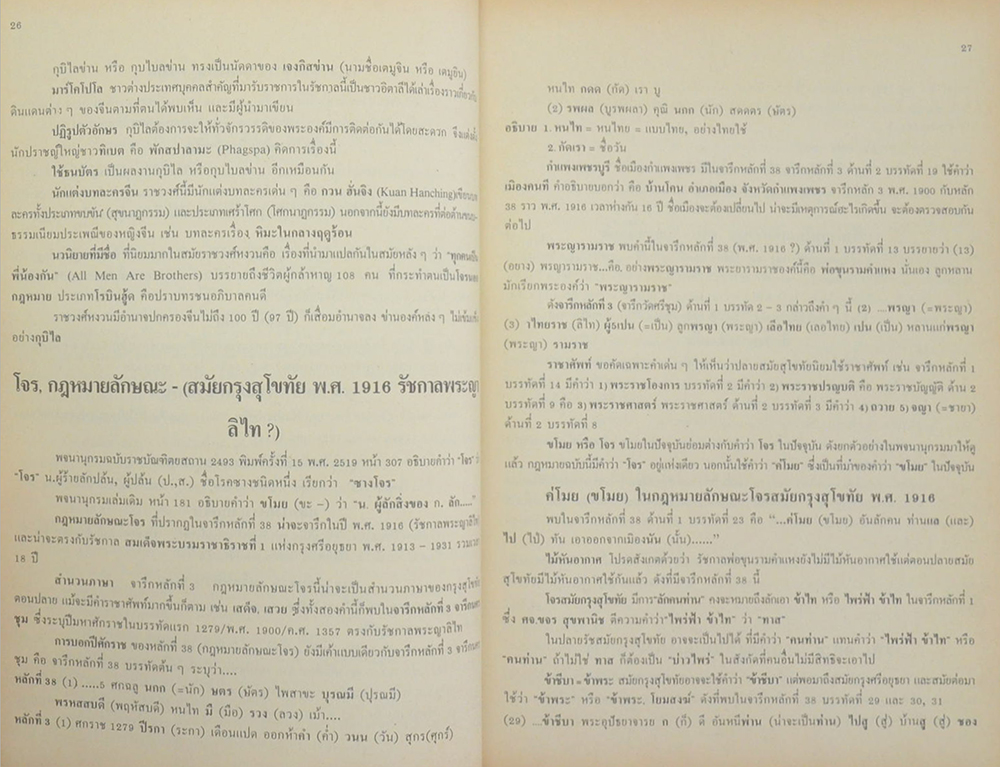 26
กุบิไลข่าน หรือ กุบไบลข่าน ทรงเป็นนัดดาของ เจงกิสข่าน (นามชื่อเตมูจิน หรือ เตมูยิน)
มาร์โคโปโล ชาวต่างประเทศบุคคลสำคัญที่มารับราชการในรัชกาลนี้เป็นชาวอิตาลีได้เล่าเรื่องราวเกี่ยวกับ
ดินแดนต่าง ๆ ของจีนตามที่ตนได้พบเห็น และมีผู้นำมาเขียน
ปฏิรูปตัวอักษร กุบิไลต้องการจะให้ทั่วจักรวรรดิของพระองค์มีการติดต่อกันได้โดยสะดวก จึงแต่งตั้ง
นักปราชญ์ใหญ่ชาวทิเบต คือ พักสปาลามะ (Phagspa) คิดการเรื่องนี้
ใช้ธนบัตร เป็นผลงานกุบิไล หรือกุบไบลข่าน อีกเหมือนกัน
นักแต่งบทละครจีน ราชวงศ์นี้มีนักแต่งบทละครเด่น ๆ คือ กวน ฮั่นจิง (Kuan Hanching)เขียนบท
ละครทั้งประเภทขบขัน (สุขนาฏกรรม) และประเภทเศร้าโศก (โศกนาฏกรรม) นอกจากนี้ยังมีบทละครที่ต่อต้านขนบ-
ธรรมเนียมประเพณีของหญิงจีน เช่น บทละครเรื่อง หิมะในกลางฤดูร้อน
นวนิยายที่มีชื่อ ที่นิยมมากในสมัยราชวงศ์หงวนคือ เรื่องที่นำมาแปลกันในสมัยหลัง ๆ ว่า "ทุกคนเป็น
พี่น้องกัน" (All Men Are Brothers) บรรยายถึงชีวิตผู้กล้าหาญ 108 คน ที่กระทำตนเป็นโจรนอก
กฎหมาย ประเภทโรบินฮู้ด คือปราบทรชนอภิบาลคนดี
ราชวงศ์หงวนมีอำนาจปกครองจีนไม่ถึง 100 ปี (97 ปี) ก็เสื่อมอำนาจลง ข่านองค์หลัง ๆ ไม่เข้มแข็ง
อย่างกุบิไล
โจร, กฎหมายลักษณะ - (สมัยกรุงสุโขทัย พ.ศ. 1916 รัชกาลพระญา
ลิไท ?)
พจนานุกรมฉบับราชบัณฑิตยสถาน 2493 พิมพ์ครั้งที่ 15 พ.ศ. 2519 หน้า 307 อธิบายคำว่า "โจร" ว่า
"โจร" น.ผู้ร้ายลักปล้น, ผู้ปล้น (ป.,ส.) ชื่อโรคซางชนิดหนึ่ง เรียกว่า "ซางโจร"
พจนานุกรมเล่มเดิม หน้า 181 อธิบายคำว่า ขโมย (ขะ –) ว่า "น. ผู้ลักสิ่งของ ก. ลัก...."
กฎหมายลักษณะโจร ที่ปรากฏในจารึกหลักที่ 38 น่าจะจารึกในปี พ.ศ. 1916 (รัชกาลพระญาลิไท)
และน่าจะตรงกับรัชกาล สมเด็จพระบรมราชาธิราชที่ 1 แห่งกรุงศรีอยุธยา พ.ศ. 1913 – 1931 รวมเวลา
18 ปี
สำนวนภาษา จารึกหลักที่ 3 กฎหมายลักษณะโจรนี้น่าจะเป็นสำนวนภาษาของกรุงสุโขทัย
ตอนปลาย แม้จะมีคำราชาศัพท์มากขึ้นก็ตาม เช่น เสด็จ, เสวย ซึ่งทั้งสองคำนี้ก็พบในจารึกหลักที่ 3 จารึกนคร
ชุม ซึ่งระบุปีมหาศักราชในบรรทัดแรก 1279/พ.ศ. 1900/ค.ศ. 1357 ตรงกับรัชกาลพระญาลิไท
การบอกปีศักราช ของหลักที่ 38 (กฎหมายลักษณะโจร) ยังมีเค้าแบบเดียวกับจารึกหลักที่ 3 จารึกนคร
ชุม คือ จารึกหลักที่ 38 บรรทัดต้น ๆ ระบุว่า....
หลักที่ 38 (1) .....5 ศกฉลู นกก (=นัก) ษตร (ษัตร) ไพสาขะ บุรณมี (ปุรณมี)
พรหสสบดี (พฤหัสบดี) หนไท มี (มือ) รวง (ลวง) เม้า....
หลักที่ 3 (1) ศกราช 1279 ปีรกา (ระกา) เดือนแปด ออกห้าคำ (ค่ำ) วนน (วัน) สุกร(ศุกร์)
27
หนไท กดด (กัด) เรา บู
(2) รพผล (บูรพผลา) คุณิ นกก (นัก) สดดตร (ษัตร)
อธิบาย 1. หนไท = หนไทย = แบบไทย, อย่างไทยใช้
2. กัดเรา = ชื่อวัน
กำแพงเพชรบุรี ชื่อเมืองกำแพงเพชร มีในจารึกหลักที่ 38 จารึกหลักที่ 3 ด้านที่ 2 บรรทัดที่ 19 ใช้คำว่า
เมืองคนที คำอธิบายบอกว่า คือ บ้านโคน อำเภอเมือง จังหวัดกำแพงเพชร จารึกหลัก 3 พ.ศ. 1900 กับหลัก
38 ราว พ.ศ. 1916 เวลาห่างกัน 16 ปี ชื่อเมืองจะต้องเปลี่ยนไป น่าจะมีเหตุการณ์อะไรเกิดขึ้น จะต้องตรวจสอบกัน
ต่อไป
พระญารามราช พบคำนี้ในจารึกหลักที่ 38 (พ.ศ. 1916 ?) ด้านที่ 1 บรรทัดที่ 13 บรรยายว่า (13)
(อยาง) พรญารามราช...คือ. อย่างพระญารามราช พระยารามราชองค์นี้คือ พ่อขุนรามคำแหง นั่นเอง ลูกหลาน
มักเรียกพระองค์ว่า "พระญารามราช"
ดังจารึกหลักที่ 3 (จารึกวัดศรีชุม) ด้านที่ 1 บรรทัด 2 – 3 กล่าวถึงคำ ๆ นี้ (2) ...พรญา (=พระญา)
(3) าไทยราช (ลิไท) ผู้5เปน (=เป็น) ลูกพรญา (พระญา) เลือไทย (เลอไทย) เปน (เป็น) หลานแก่พรญา
(พระญา) รามราช
ราชาศัพท์ ขอคัดเฉพาะคำเด่น ๆ ให้เห็นว่าปลายสมัยสุโขทัยนิยมใช้ราชาศัพท์ เช่น จารึกหลักที่ 1
บรรทัดที่ 14 มีคำว่า 1) พระราชโองการ บรรทัดที่ 2 มีคำว่า 2) พระราชปรญบติ คือ พระราชบัญญัติ ด้าน 2
บรรทัดที่ 9 คือ 3) พระราชศาสตร์ พระราชศาสตร์ ด้านที่ 2 บรรทัดที่ 3 มีคำว่า 4) ถวาย 5) จญา (=ชายา)
ด้านที่ 2 บรรทัดที่ 8
ขโมย หรือ โจร ขโมยในปัจจุบันย่อมต่างกับคำว่า โจร ในปัจจุบัน ดังยกตัวอย่างในพจนานุกรมมาให้ดู
แล้ว กฎหมายฉบับนี้มีคำว่า "โจร" อยู่แห่งเดียว นอกนั้นใช้คำว่า "ค่โมย" ซึ่งเป็นที่มาของคำว่า "ขโมย" ในปัจจุบัน
ค่โมย (ขโมย) ในกฎหมายลักษณะโจรสมัยกรุงสุโขทัย พ.ศ. 1916
พบในจารึกหลักที่ 38 ด้านที่ 1 บรรทัดที่ 23 คือ "...ค่โมย (ขโมย) ยันลักคน ท่านแล (และ)
ไป (ไป๋) ทัน เอาออกจากเมืองนัน (นั้น)......"
ไม้หันอากาศ โปรดสังเกตด้วยว่า รัชกาลพ่อขุนรามคำแหงยังไม่มีไม้หันอากาศใช้แต่ตอนปลายสมัย
สุโขทัยมีไม้หันอากาศใช้กันแล้ว ดังที่มีจารึกหลักที่ 38 นี้
โจรสมัยกรุงสุโขทัย มีการ"ลักคนท่าน" คงจะหมายถึงลักเอา ข้าไท หรือ ไพร่ฟ้า ข้าไท ในจารึกหลักที่ 1
ซึ่ง ศจ.ขจร สุขพานิช ตีความคำว่า"ไพร่ฟ้า ข้าไท" ว่า "ทาส"
ในปลายรัชสมัยกรุงสุโขทัย อาจจะเป็นไปได้ ที่มีคำว่า "คนท่าน" แทนคำว่า "ไพร่ฟ้า ข้าไท" หรือ
"คนท่าน" ถ้าไม่ใช่ ทาส ก็ต้องเป็น "บ่าวไพร่" ในสังกัดที่คนอื่นไม่มีสิทธิจะเอาไป
ข้าชีบา = ข้าพระ สมัยกรุงสุโขทัยอาจจะใช้คำว่า "ข้าชีบา" แต่พอมาถึงสมัยกรุงศรีอยุธยา และสมัยต่อมา
ใช้ว่า "ข้าพระ" หรือ "ข้าพระ, โยมสงฆ์" ดังที่พบในจารึกหลักที่ 38 บรรทัดที่ 29 และ 30, 31
(29) ...ข้าชีบา พระอุปัธยาจารย ก (ก็) ดี อันหนีพ่าน (น่าจะเป็นท่าน) ไปสู (สู่) บ้านสู (สู่) ของ